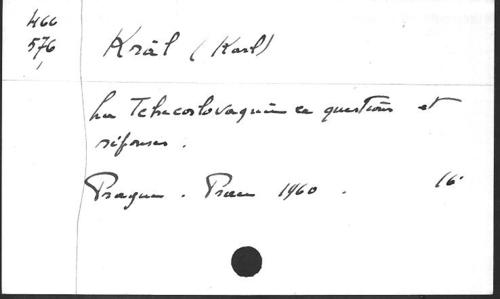 466
576
Král (Karl)
La Tchécoslovaquie en questions et
réponses.
Prague. Prace 1960. 16°